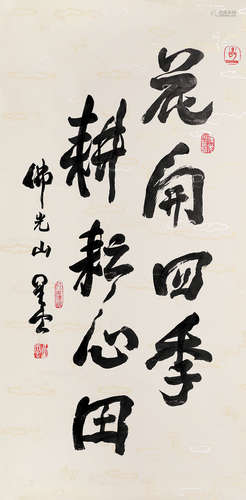 花開四季
耕耘心田
佛光山 星雲